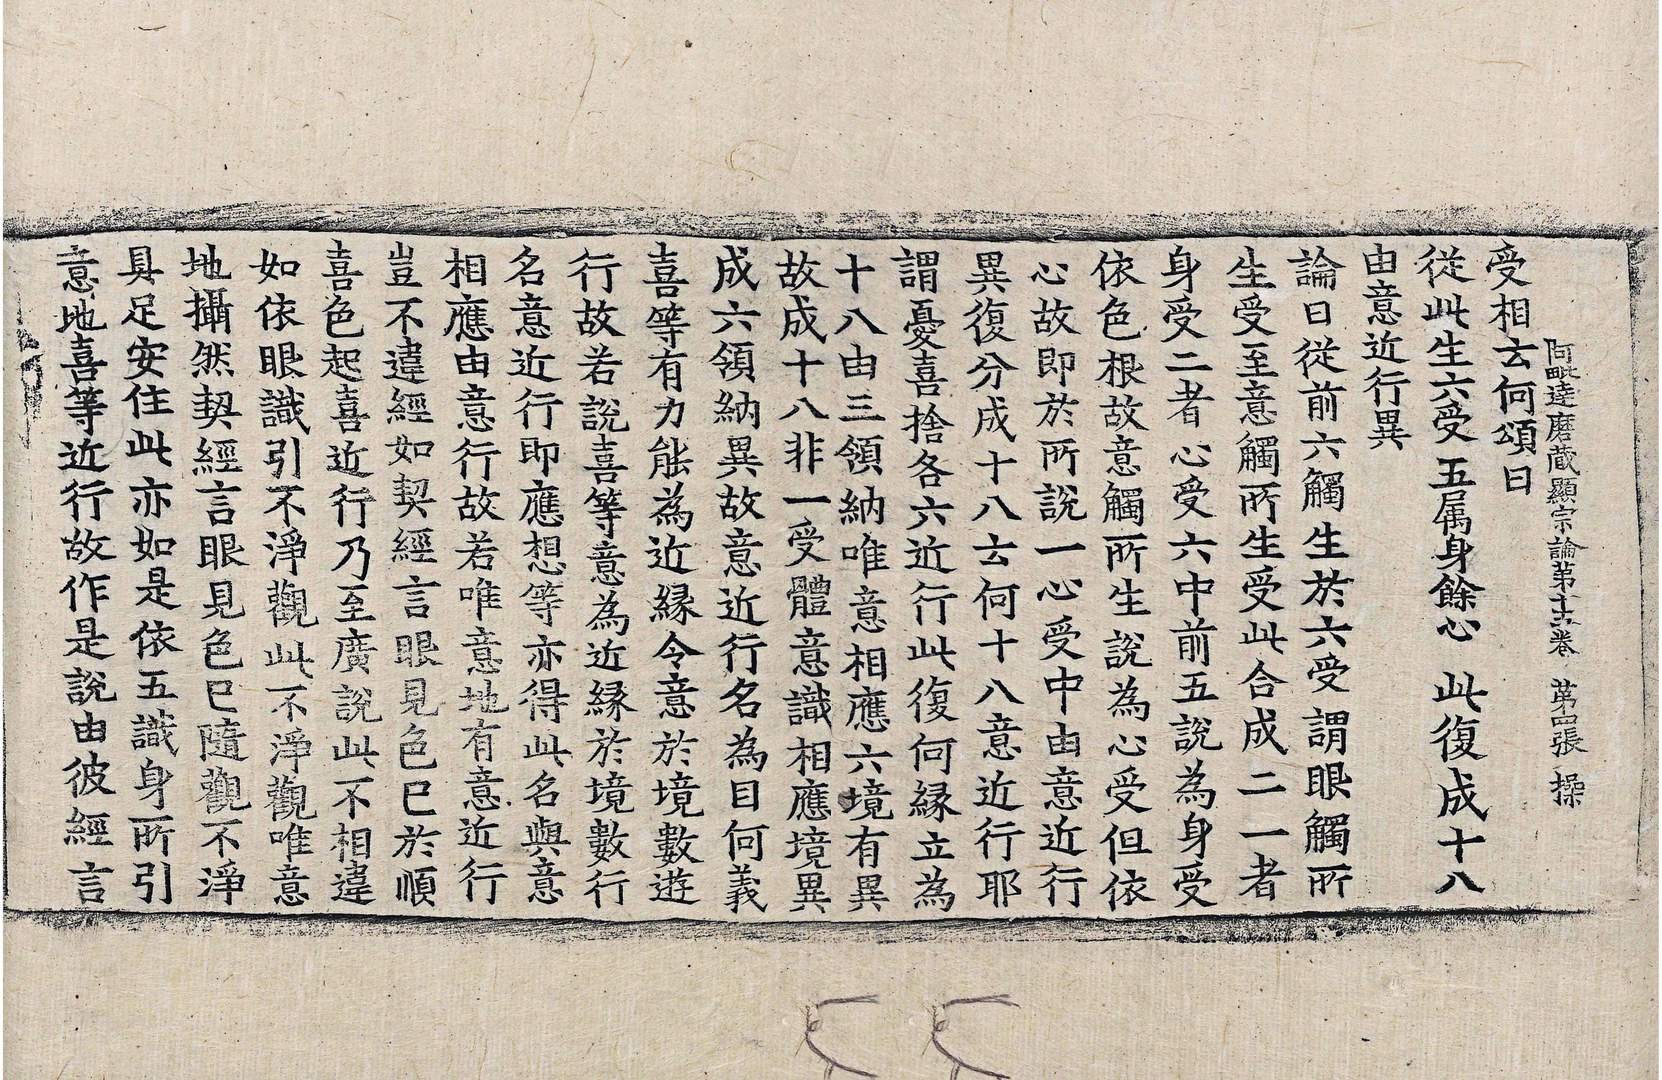 阿毗達磨藏顯宗論第十五卷 第四張 操
受相云何頌曰
從此生六受 五属身餘心 此復成十八
由意近行異
論曰從前六觸生於六受謂眼觸所
生受至意觸所生受此合成二一者
身受二者心受六中前五說為身受
依色根故意觸所生說為心受但依
心故即於所說一心受中由意近行
異復分成十八云何十八意近行耶
謂憂喜捨各六近行此復何縁立為
十八由三領納唯意相應六境有異
故成十八非一受體意識相應境異
成六領納異故意近行名為目何義
喜等有力能為近縁令意於境數遊
行故若說喜等意為近縁於境數行
名意近行即應想等亦得此名與意
相應由意行故若唯意地有意近行
豈不違經如契經言眼見色已於順
喜色起喜近行乃至廣說此不相違
如依眼識引不淨觀此不淨觀唯意
地攝然契經言眼見色已隨觀不淨
具足安住此亦如是依五識身所引
意地喜等近行故作是說由彼經言